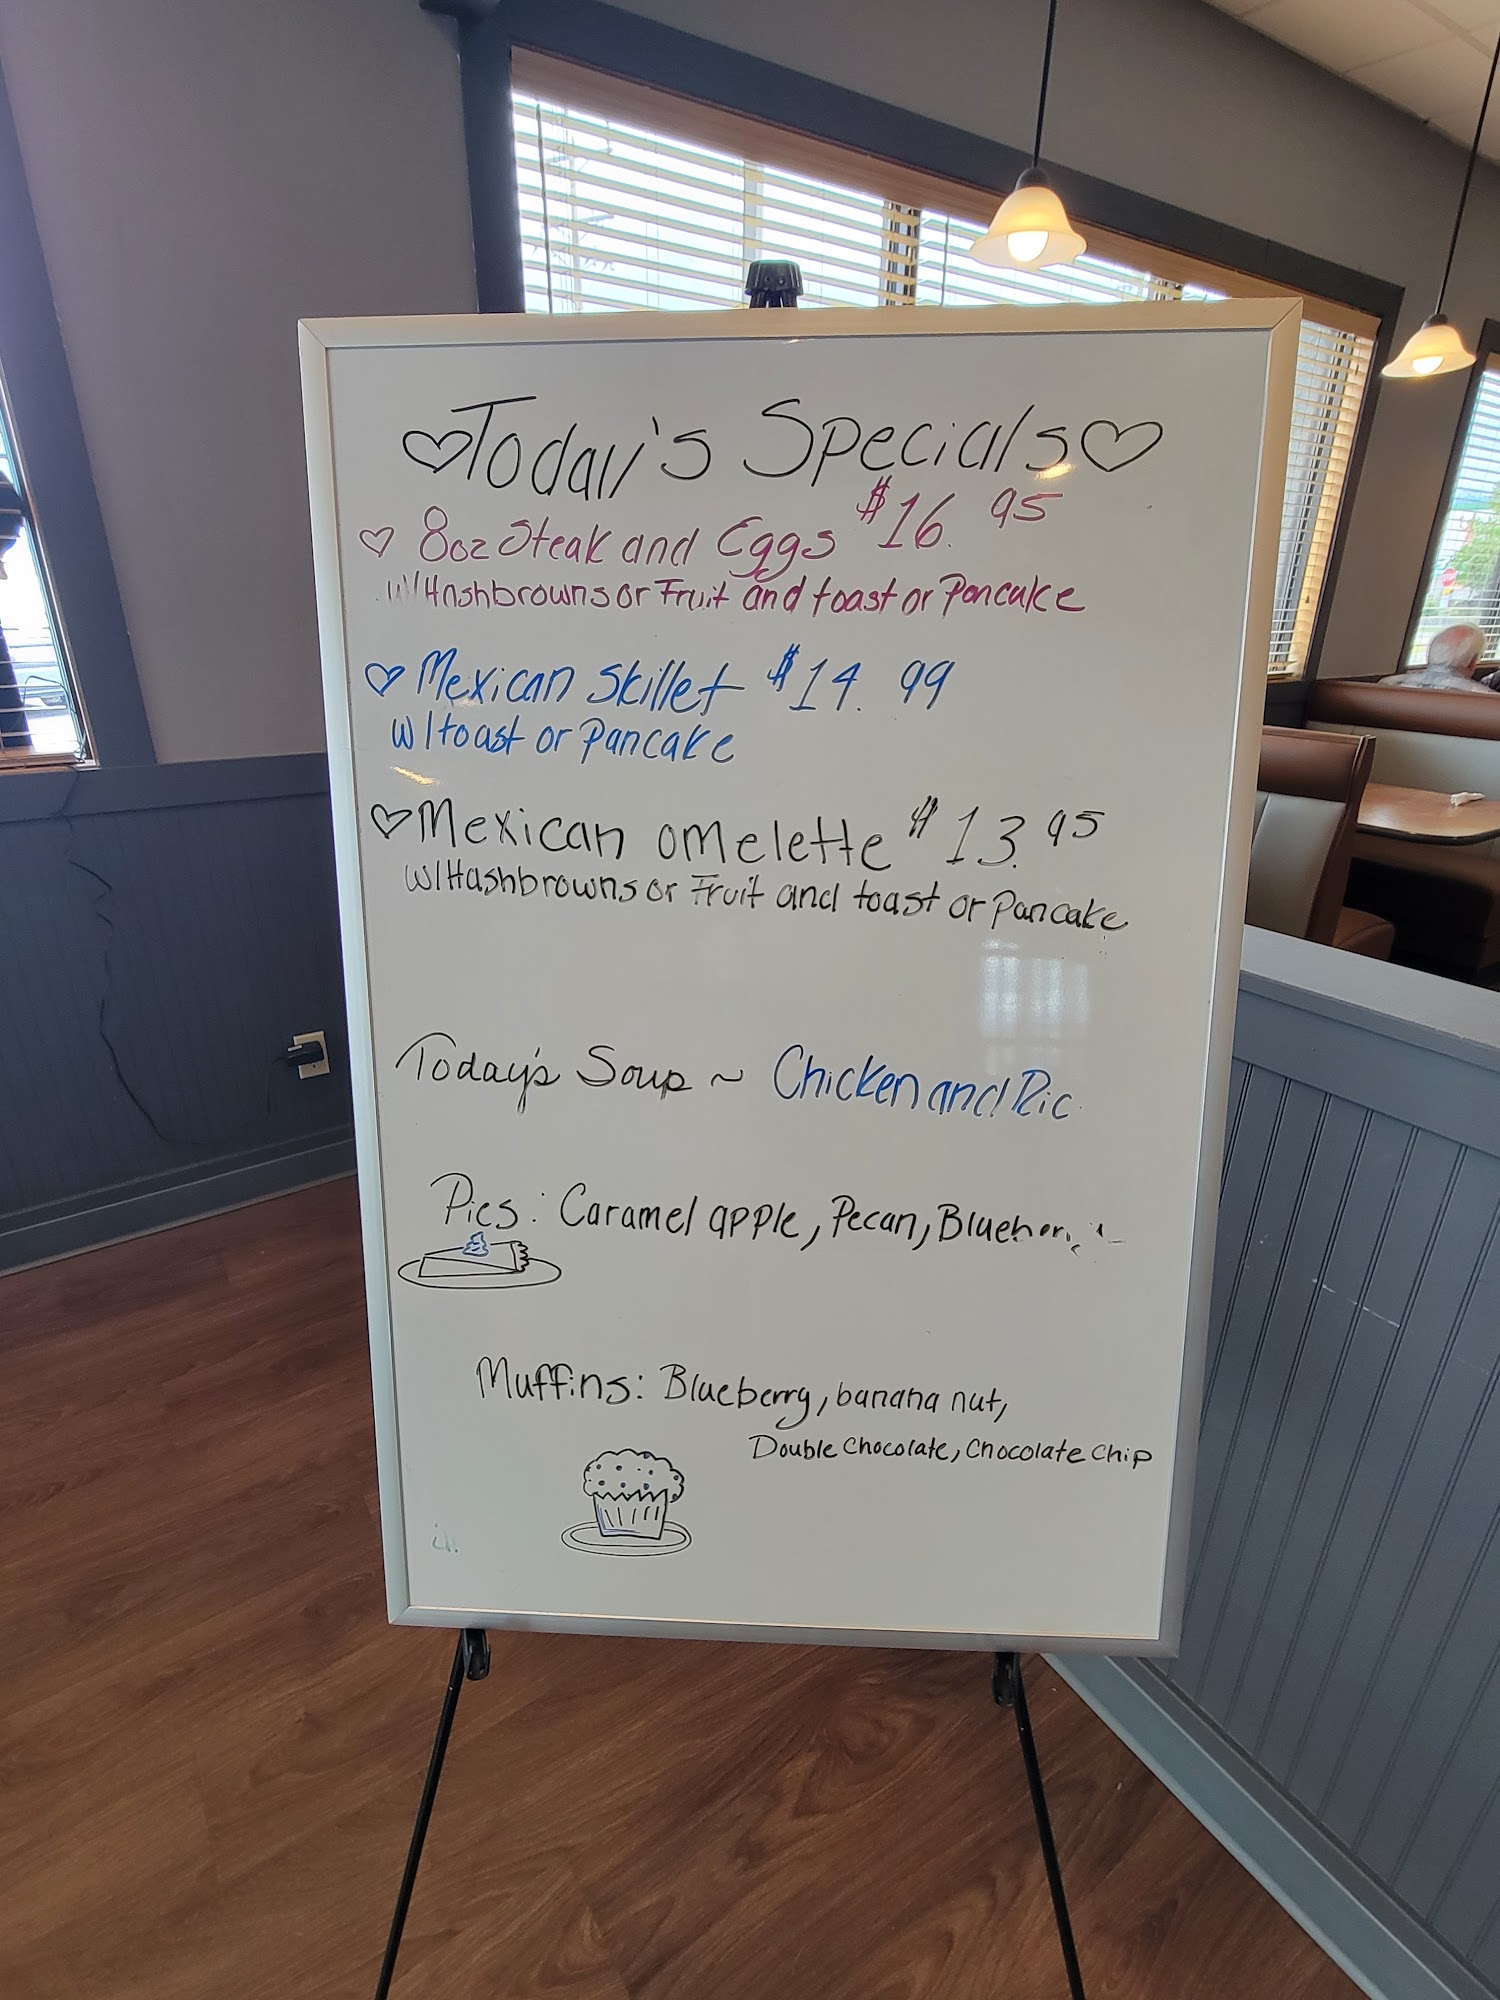 ♡Today's Specials♡
♡ 8oz Steak and Eggs $16.95
w/Hashbrowns or Fruit and toast or Pancake
♡ Mexican Skillet $14.99
w/toast or Pancake
♡Mexican omelette $13.95
w/Hashbrowns or Fruit and toast or Pancake
Today's Soup ~ Chicken and Ric
Pies: Caramel apple, Pecan,
Muffins: Blueberry, banana nut,
Double Chocolate, Chocolate Chip